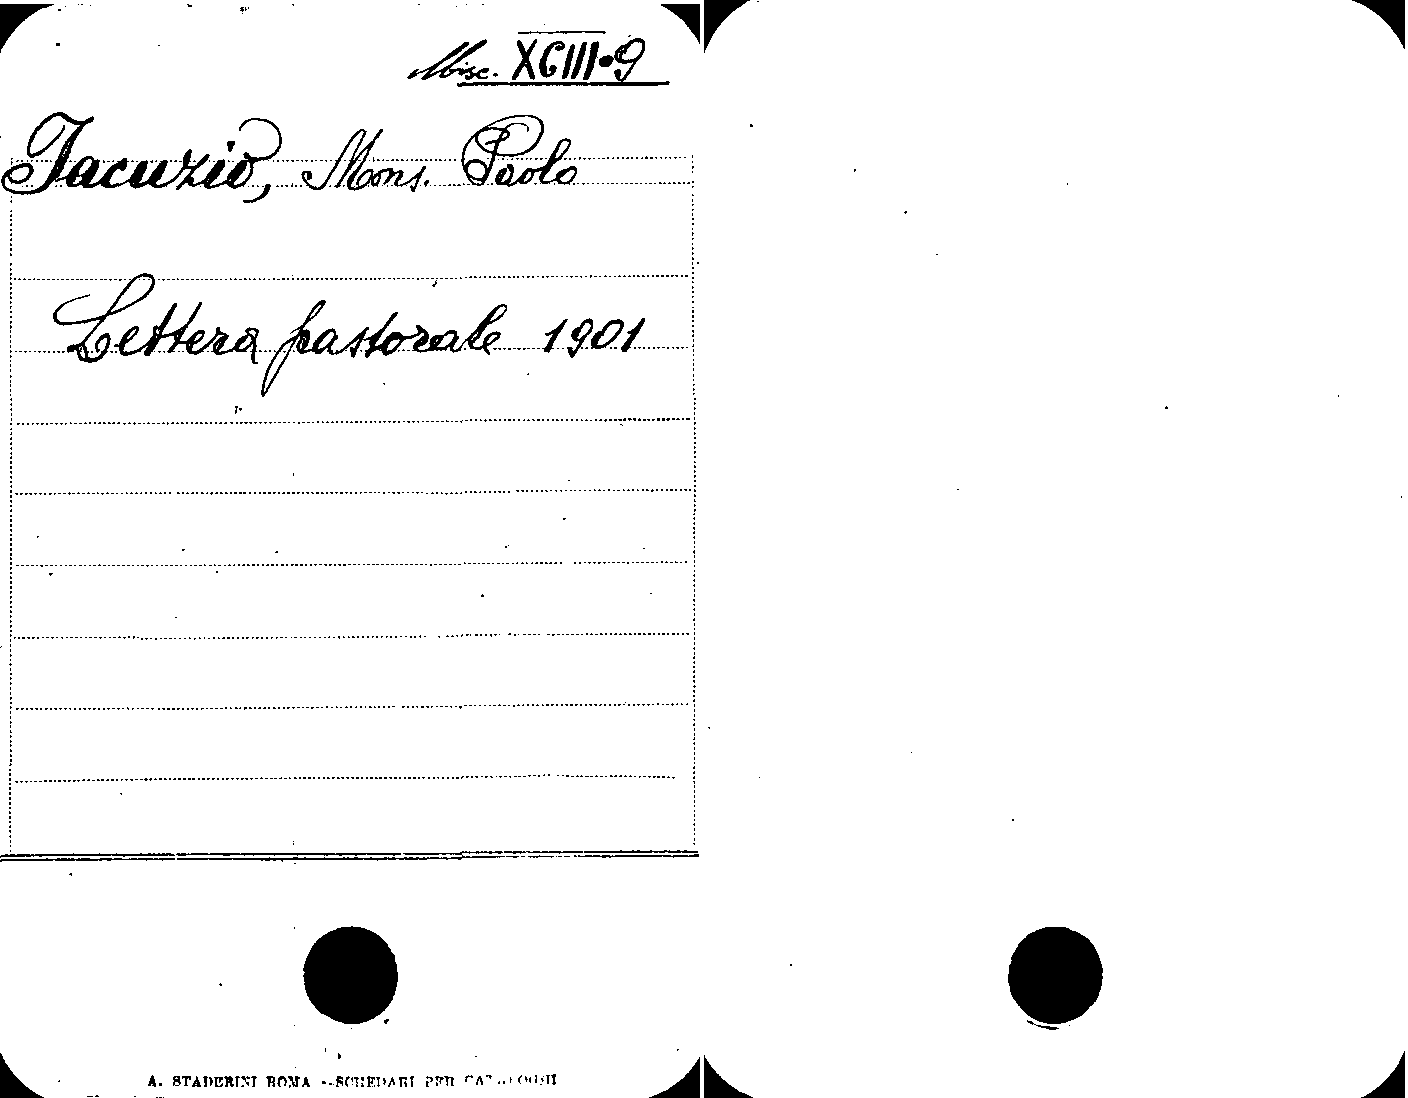 Misc. XCIII·9
Jacuzio, Mons. Paolo
Lettera pastorale 1901
A. STADERINI ROMA - SCHEDARI PER